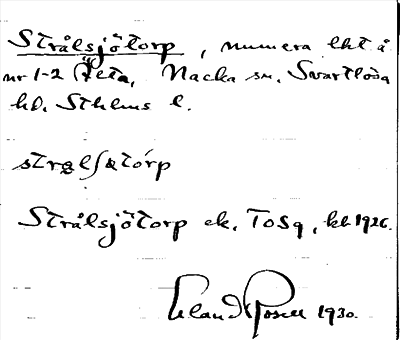 Strålsjötorp, numera lht å
nr 1-2 Älta, Nacka sn, Svartlösa
hd. Sthlms l.
Strålsjötorp ek. ToSq, kbl 1926.
Erland Rosell 1930.